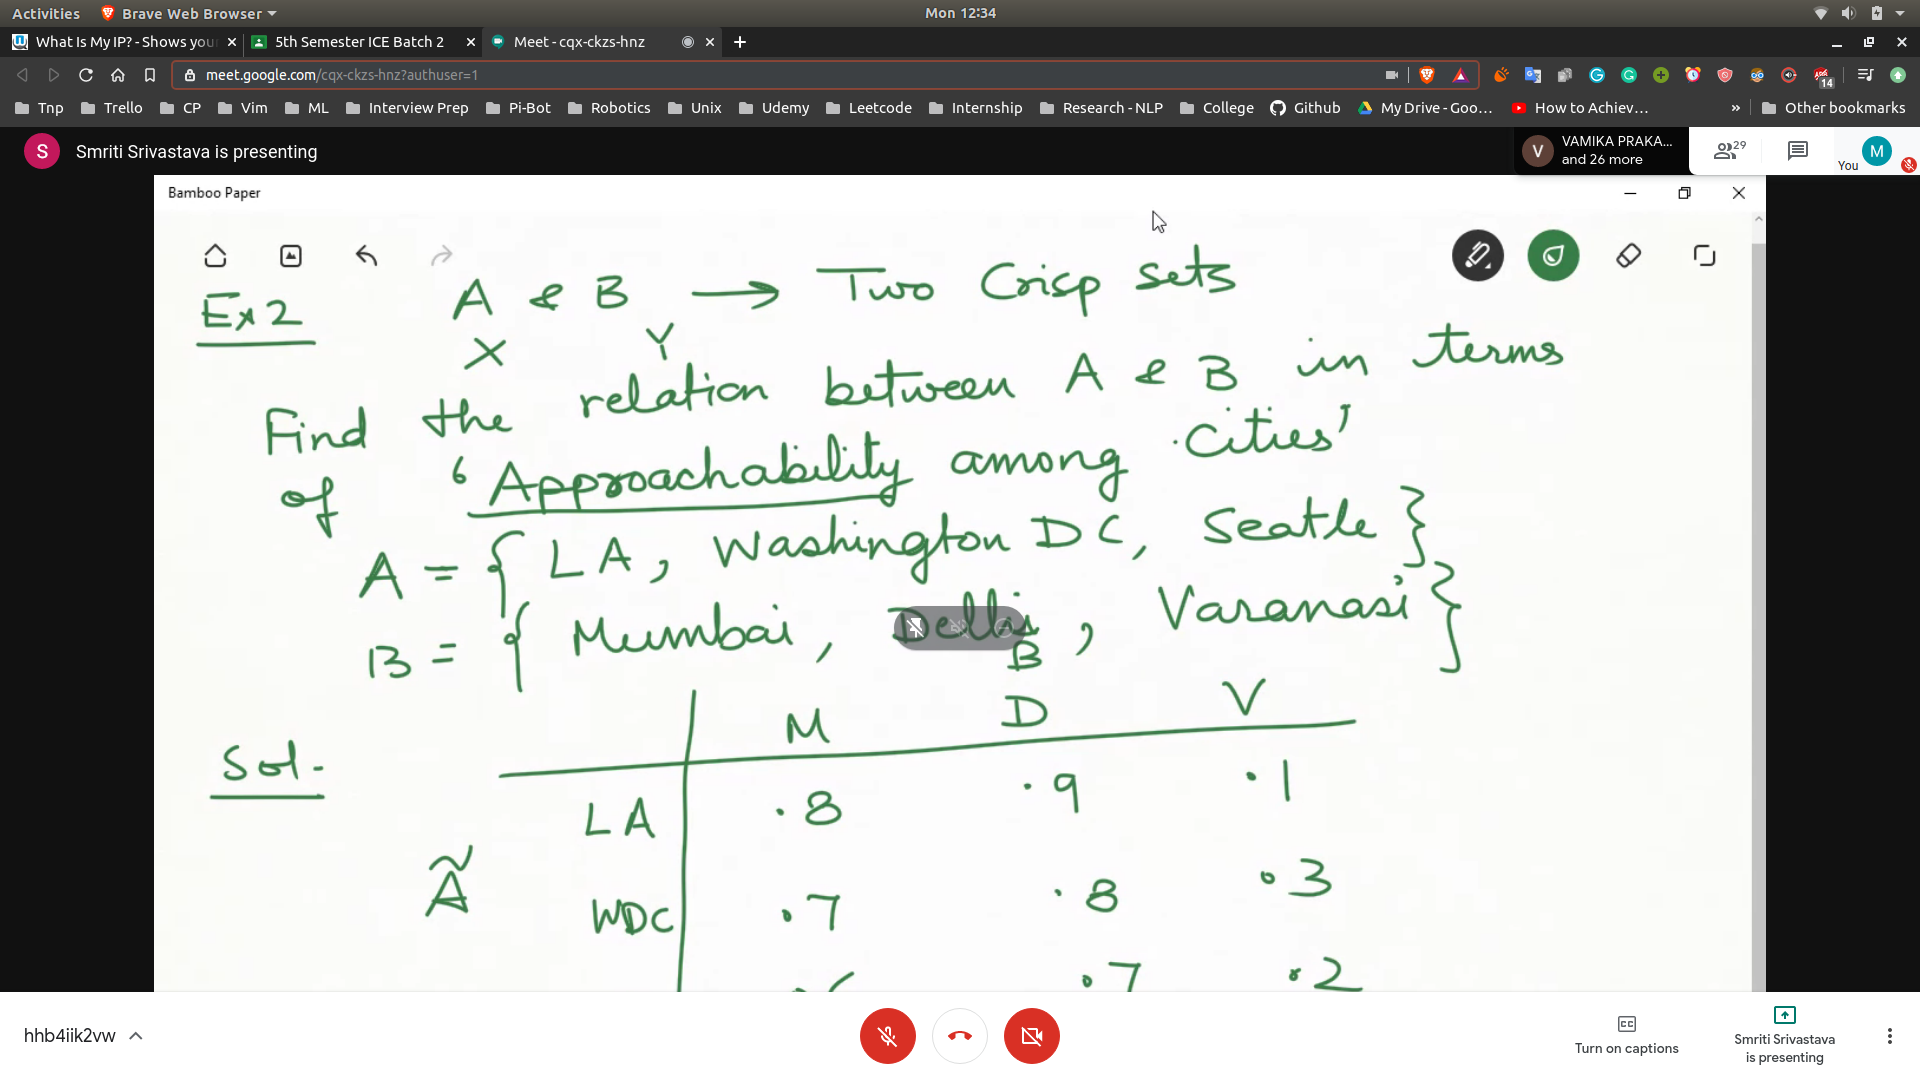 Activities Brave Web Browser Mon 12:34
What Is My IP? - Shows you 5th Semester ICE Batch 2 Meet - cqx-ckzs-hnz
meet.google.com/cqx-ckzs-hnz?authuser=1 14
Tnp Trello CP Vim ML Interview Prep Pi-Bot Robotics Unix Udemy Leetcode Internship Research - NLP College Github My Drive - Goo... How to Achiev... » Other bookmarks
S Smriti Srivastava is presenting
V VAMIKA PRAKA... and 26 more 29 You M
Bamboo Paper
Ex 2 A & B → Two Crisp sets
X Y
Find the relation between A & B in terms
of ‘Approachability among Cities’
A = { LA, Washington DC, Seatle }
B = { Mumbai, Delhi, Varanasi }
B
M D V
Sol.
LA .8 .9 .1
Ã
WDC .7 .8 .3
.7 .2
hhb4iik2vw
Turn on captions
Smriti Srivastava
is presenting